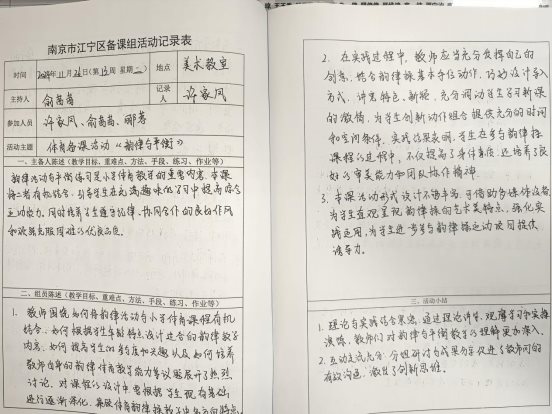 南京市江宁区备课组活动记录表
时间
2024年11月26日(第13周 星期二)
地点
美术教室
主持人
俞菁菁
记录人
许家凤
参加人员
许家凤、俞菁菁、
活动主题
体育备课活动《韵律与平衡》
一、主备人陈述(教学目标、重难点、方法、手段、练习、作业等)
韵律活动与平衡练习是小学体育教学的重要内容,本课
将二者有机结合,引导学生在充满趣味的学习中提高综合
运动能力。同时培养学生遵守纪律、协同合作的良好作风
和沉着克服困难的优良品质。
二、组员陈述(教学目标、重难点、方法、手段、练习、作业等)
1. 教师围绕如何将韵律活动与小学体育课程有机
结合、如何根据学生年龄特点设计适合的韵律教学
内容、如何提高学生的参与度和兴趣以及如何培养
教师自身的韵律体育教学能力等议题展开了热烈
讨论。对课程的设计中要根据学生现有基础
进行逐渐深化,
2. 在实践过程中,教师应当充分发挥自己的
创意,结合韵律操基本手位动作,巧妙设计导入
方式,讲究特色、新颖,充分调动学生学习新课
的激情,为学生创新动作组合提供充分的时间
和空间条件。实践结果表明,学生在参与韵律操
课程的过程中,不仅提高了身体素质,还培养了良
好的审美能力和团队协作精神。
3. 本课活动形式设计不够丰富,可借助多媒体设备
为学生直观呈现韵律操的艺术美特点,强化实
践运用,为学生进一步参与韵律操运动学习提供
诱导力。
三、活动小结
1. 理论与实践结合紧密,通过理论讲解、观摩学习和实操
演练,教师们对韵律与平衡教学的理解更加深入。
2. 互动交流充分,分组研讨与成果分享促进了教师间的
有效沟通,激发了创新思维。